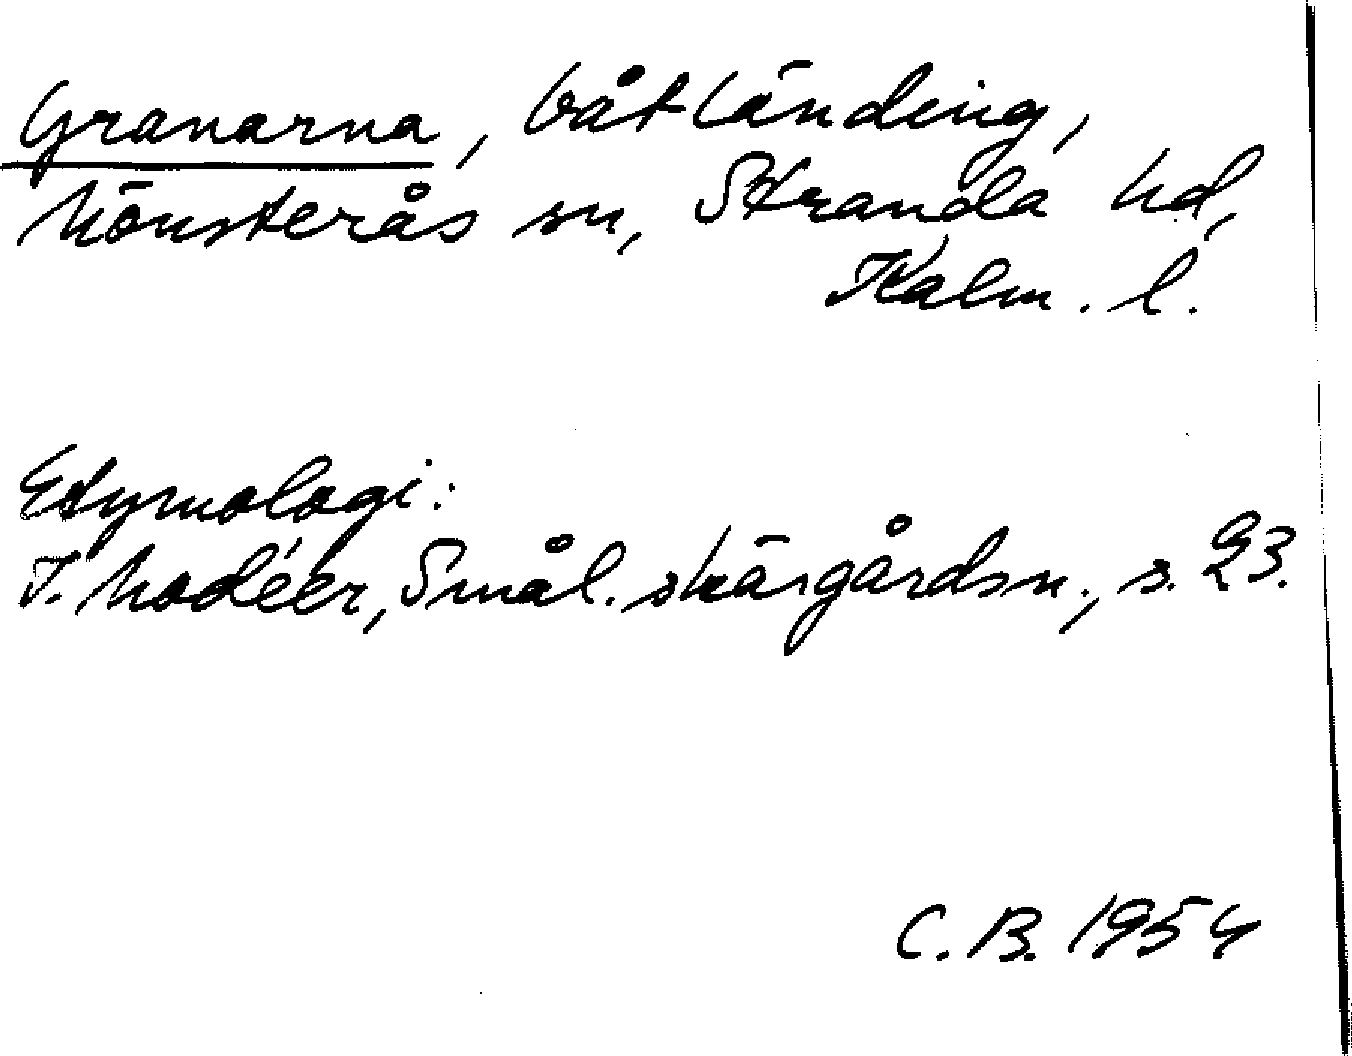 Granarna, båtländing,
Mönsterås sn, Stranda hd,
Kalm. l.
Etymologi:
I. Modéer, Smål. skärgårdsn., s. 23.
C. B. 1954